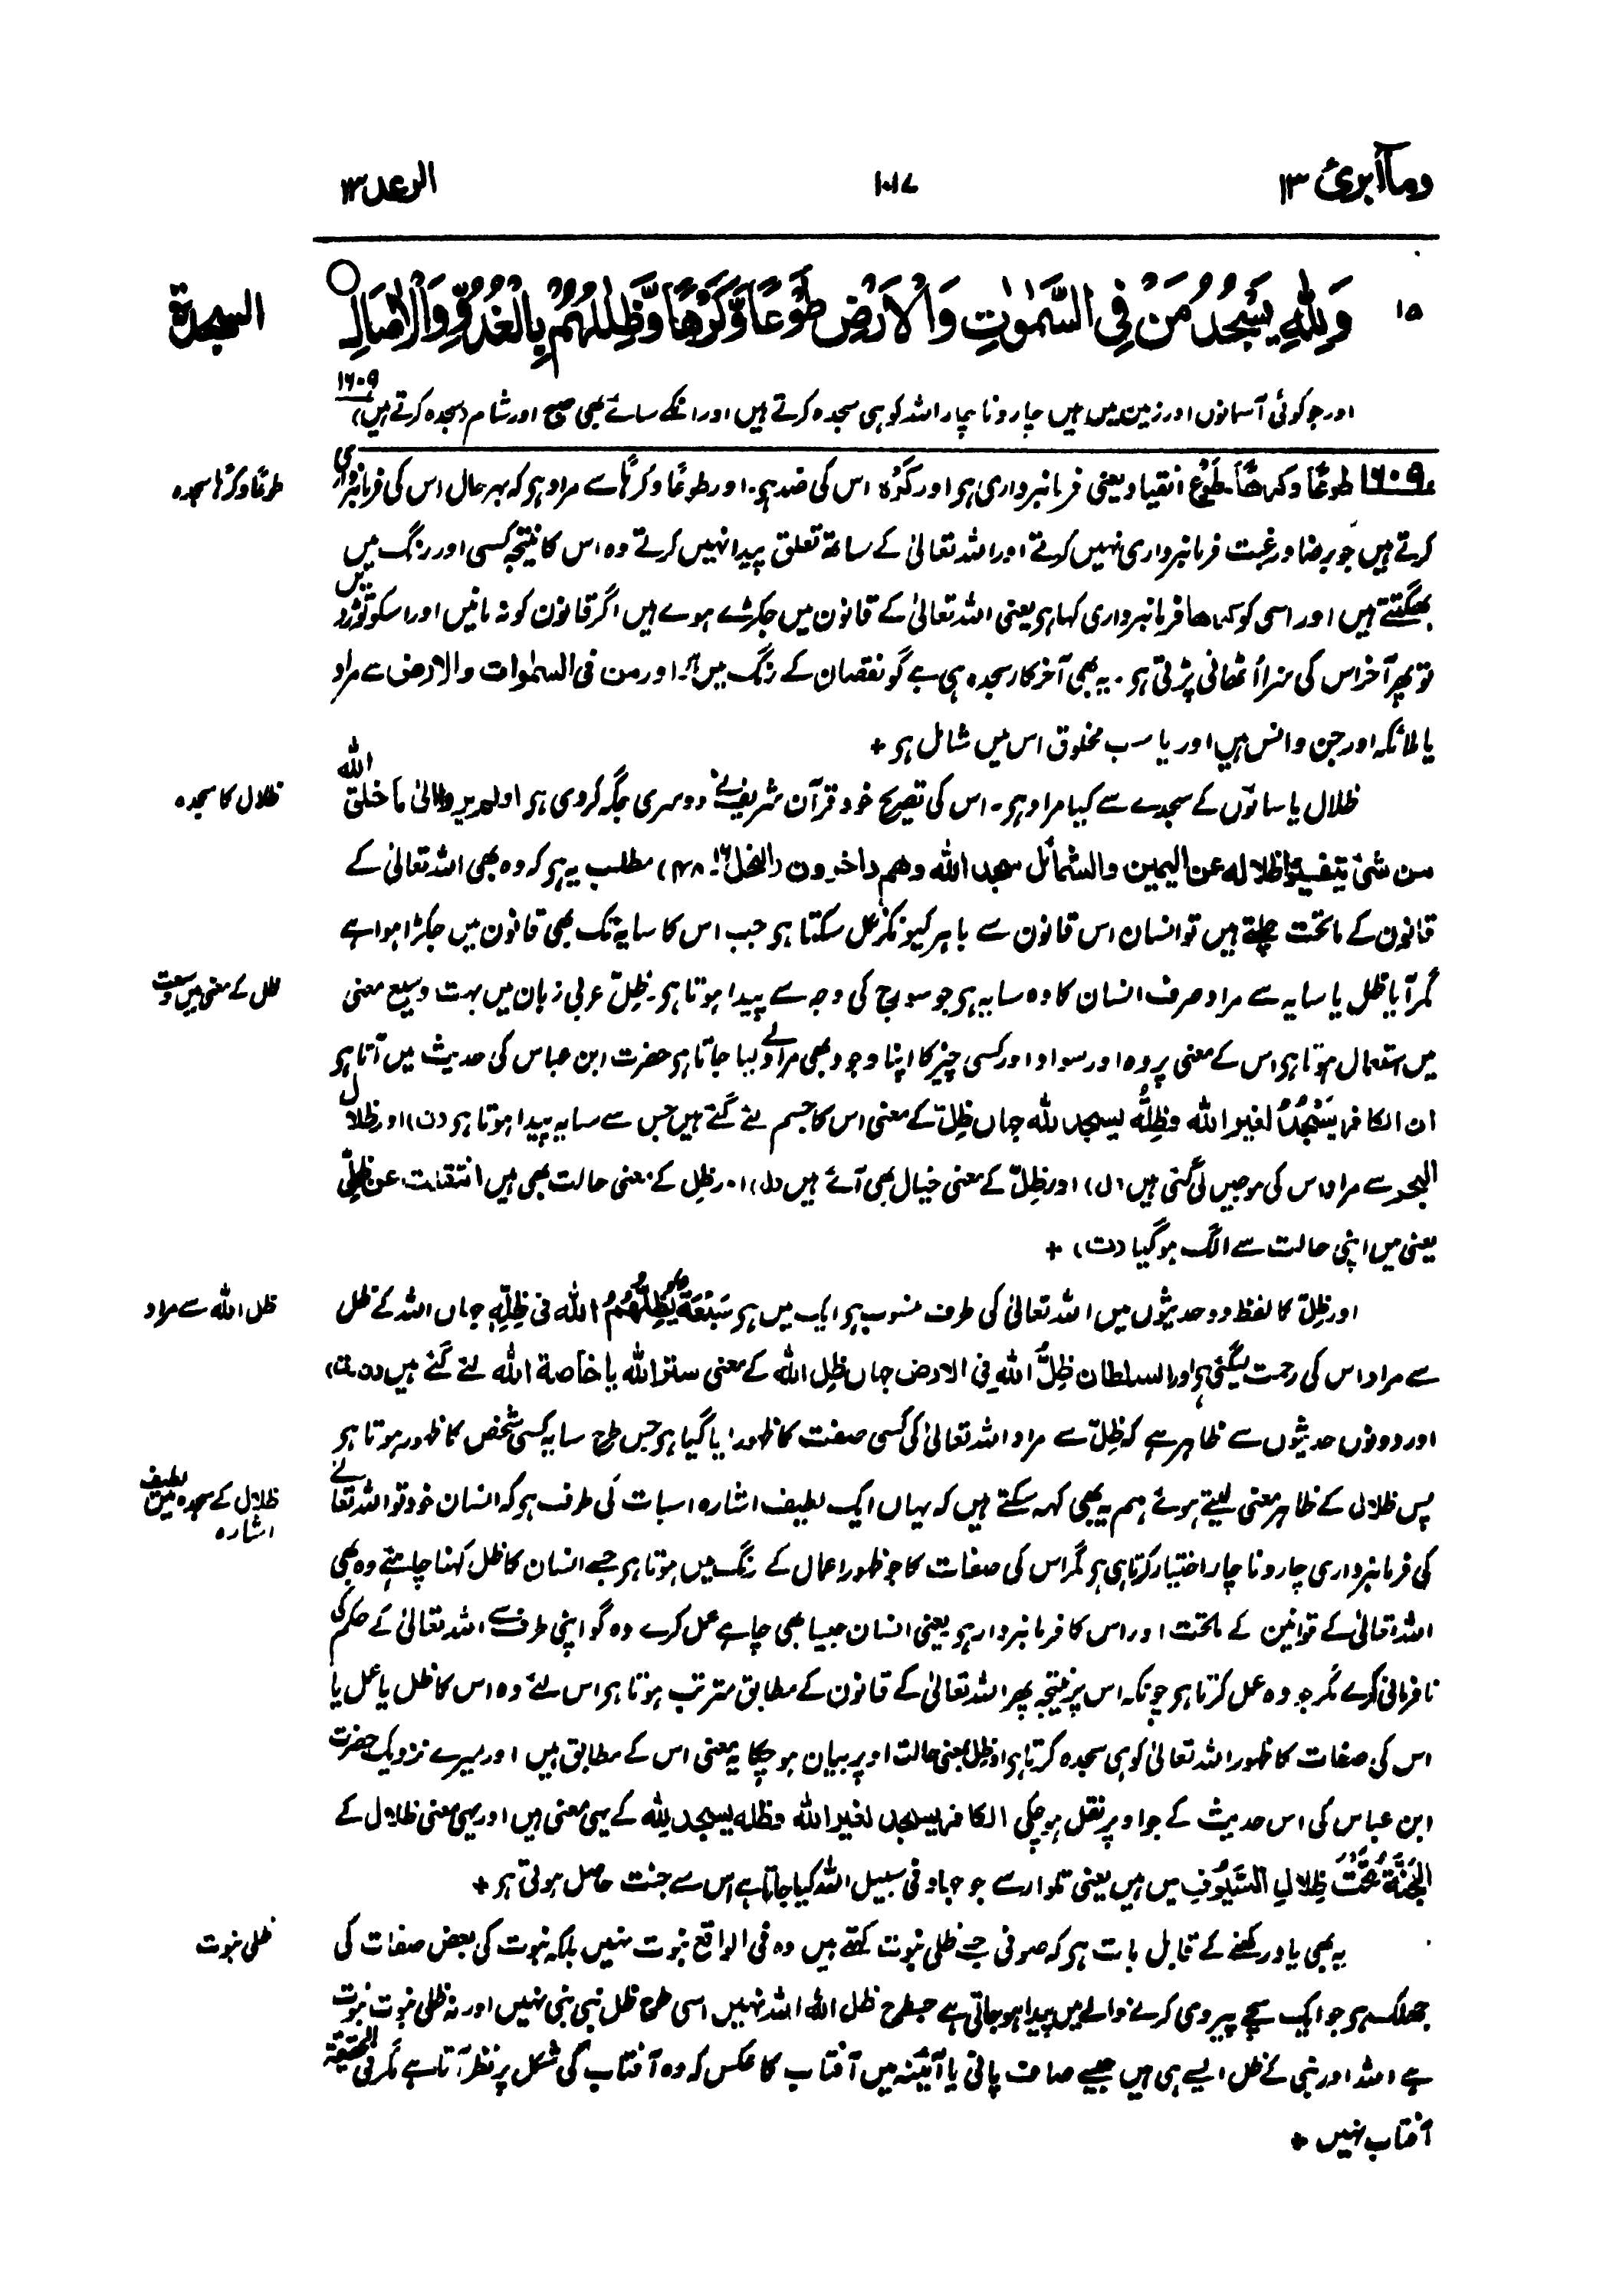 ومآ ابرئ ۱۳
۱۰۱۷
الرعد ۱۳
۱۵
وَلِلّٰهِ يَسْجُدُ مَنْ فِى السَّمٰوٰتِ وَالْاَرْضِ طَوْعًا وَّكَرْهًا وَّظِلٰلُهُمْ بِالْغُدُوِّ وَالْاٰصَالِ
السجدة
اور جو کوئی آسمانوں اور زمین میں ہیں چار و ناچار اللہ کو ہی سجدہ کرتے ہیں اور انکے سائے بھی صبح اور شام (سجدہ کرتے ہیں) ۱۶۰۹
۱۶۰۹ طوعًا وکرھًا۔ طَوْع انقیاد یعنی فرمانبرداری ہو اور کَرْہ اس کی ضد ہو۔ اور طوعًا وکرہًا سے مراد ہو کہ بہرحال اس کی فرمانبرداری
طوعًا وکرہًا سجدہ
کرتے ہیں جو برضا ورغبت فرمانبرداری نہیں کرتے اور اللہ تعالیٰ کے ساتھ تعلق پیدا نہیں کرتے وہ اس کا نتیجہ کسی اور رنگ میں
بھگتتے ہیں اور اسی کو کرھا فرمانبرداری کہا ہو یعنی اللہ تعالیٰ کے قانون میں جکڑے ہوے ہیں اگر قانون کو نہ مانیں اور اسکو توڑدیں
تو پھر آخر اس کی سزا اُٹھانی پڑتی ہو۔ یہ بھی آخر کار سجدہ ہی ہے گو نقصان کے رنگ میں ہو۔ اور من فی السمٰوات والارض سے مراد
یا ملائکہ اور جن وانس ہیں اور یا سب مخلوق اس میں شامل ہو +
ظلال یا سائوں کے سجدے سے کیا مراد ہو۔ اس کی تصریح خود قرآن شریف نے دوسری جگہ کردی ہو اولم یروا الیٰ ما خلق اللہ
ظلال کا سجدہ
من شیٔ یتفیؤا ظلالہ عن الیمین والشمائل سجدا للہ وھم داخرون (النحل ۱۶۔ ۴۸) مطلب یہ ہو کہ وہ بھی اللہ تعالیٰ کے
قانون کے ماتحت چلتے ہیں تو انسان اس قانون سے باہر کیونکر نکل سکتا ہو جب اس کا سایہ تک بھی قانون میں جکڑا ہوا ہے
مگر آیا ظل یا سایہ سے مراد صرف انسان کا وہ سایہ ہو جو سورج کی وجہ سے پیدا ہوتا ہو۔ ظِلّ عربی زبان میں بہت وسیع معنی
ظل کے معنی میں وسعت
میں استعمال ہوتا ہو اس کے معنی پردہ اور سواد اور کسی چیز کا اپنا وجود بھی مراد لے لیا جاتا ہو حضرت ابن عباس کی حدیث میں آتا ہو
ان الکافر یَسْجُدُ لغیر اللہ وظِلُّہ یسجد للہ جہاں ظِلّ کے معنی اس کا جسم لئے گئے ہیں جس سے سایہ پیدا ہوتا ہو (ن) اور ظلال
البحر سے مراد اس کی موجیں لی گئی ہیں (ل) اور ظِلّ کے معنی خیال بھی آئے ہیں (ل) اور ظِل کے معنی حالت بھی ہیں انتقلت عن ظِلِّی
یعنی میں اپنی حالت سے الگ ہو گیا (ت) +
اور ظِلّ کا لفظ دو حدیثوں میں اللہ تعالیٰ کی طرف منسوب ہو ایک میں ہو سَبْعَۃٌ یُظِلُّھُمُ اللہ فی ظِلِّہٖ جہاں اللہ کے ظل
ظل اللہ سے مراد
سے مراد اس کی رحمت لیگئی ہو اور السلطان ظِلُّ اللہِ فی الارض جہاں ظِل اللہ کے معنی ستر اللہ یا خاصۃ اللہ لئے گئے ہیں (ن۔ت)
اور دونوں حدیثوں سے ظاہر ہے کہ ظِلّ سے مراد اللہ تعالیٰ کی کسی صفت کا ظہور لیا گیا ہو جس طرح سایہ کسی شخص کا ظہور ہوتا ہو
پس ظلال کے ظاہر معنی لیتے ہوئے ہم یہ بھی کہہ سکتے ہیں کہ یہاں ایک لطیف اشارہ اسبات کی طرف ہو کہ انسان خود تو اللہ تعالےٰ
ظلال کے سجدہ میں لطیف اشارہ
کی فرمانبرداری چار و ناچار اختیار کرتا ہی ہو مگر اس کی صفات کا جو ظہور اعمال کے رنگ میں ہوتا ہو جسے انسان کا ظل کہنا چاہئے وہ بھی
اللہ تعالیٰ کے قوانین کے ماتحت اور اس کا فرمانبردار ہو یعنی انسان جیسا بھی چاہے عمل کرے وہ گو اپنی طرف سے اللہ تعالیٰ کے حکم کی
نافرمانی کرے مگر جو وہ عمل کرتا ہو چونکہ اس پر نتیجہ پھر اللہ تعالیٰ کے قانون کے مطابق مترتب ہوتا ہو اس لئے وہ اس کا ظل یا عمل یا
اس کی صفات کا ظہور اللہ تعالیٰ کو ہی سجدہ کرتا ہو اور ظل بمعنی حالت اوپر بیان ہو چکا یہ معنی اس کے مطابق ہیں اور میرے نزدیک حضرت
ابن عباس کی اس حدیث کے جو اوپر نقل ہو چکی الکافر یسجد لغیر اللہ وظلہ یسجد للہ کے یہی معنی ہیں اور یہی معنی ظلال کے
الجَنَّۃُ تَحْتَ ظِلالِ السُّیُوْفِ میں ہیں یعنی تلوار سے جو جہاد فی سبیل اللہ کیا جاتا ہے اس سے جنت حاصل ہوتی ہو +
یہ بھی یاد رکھنے کے قابل بات ہو کہ صوفی جسے ظلی نبوت کہتے ہیں وہ فی الواقع نبوت نہیں بلکہ نبوت کی بعض صفات کی
ظلی نبوت
جھلک ہو جو ایک سچے پیروی کرنے والے میں پیدا ہو جاتی ہے جسطرح ظل اللہ اللہ نہیں اسی طرح ظل نبی نبی نہیں اور نہ ظلی نبوت نبوت
ہے اللہ اور نبی کے ظل ایسے ہی ہیں جیسے صاف پانی یا آئینہ میں آفتاب کا عکس کہ وہ آفتاب کی شکل پر نظر آتا ہے مگر فی الحقیقۃ
آفتاب نہیں +